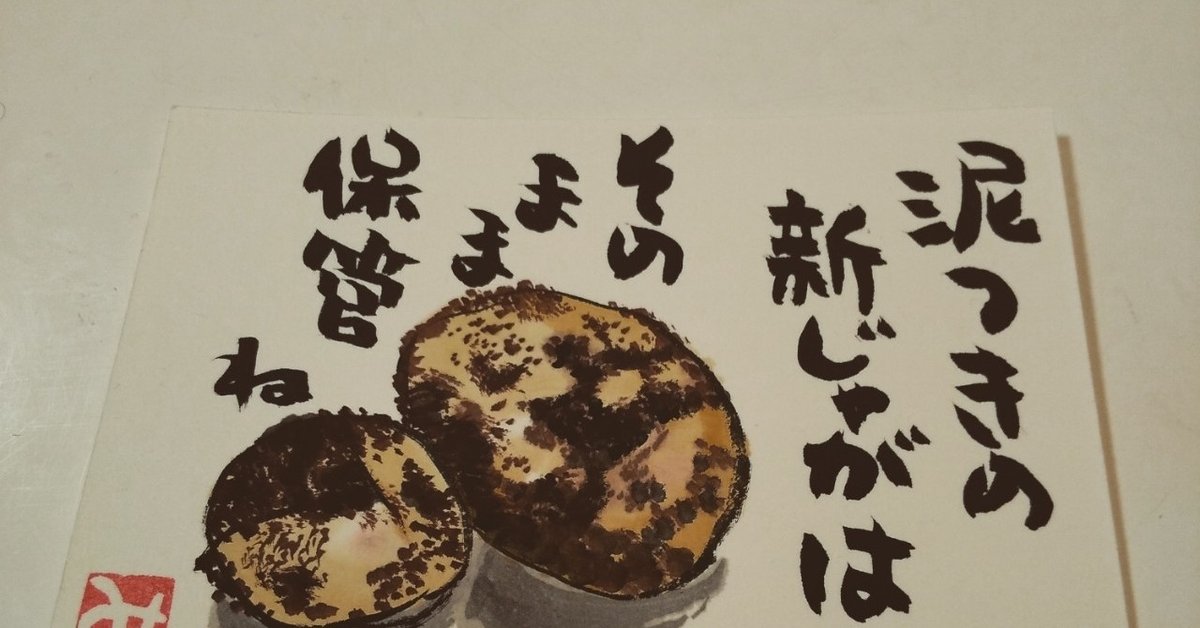 泥つきの
新じゃがは
その
まま
保管
ね